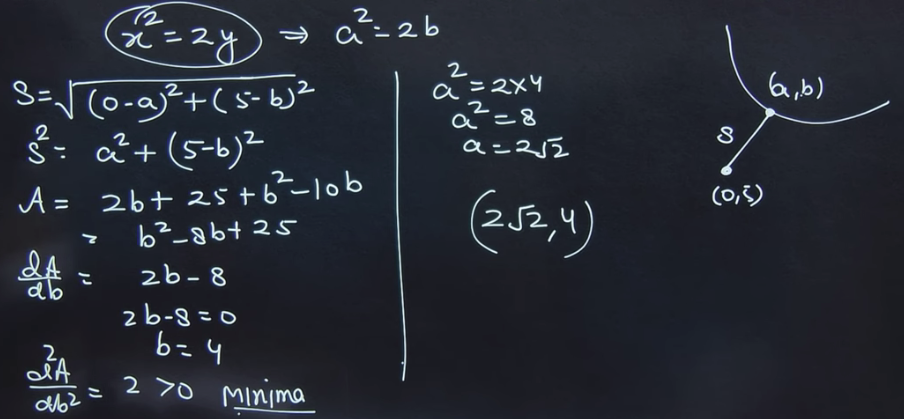 x² = 2y ⇒ a² = 2b
S = √(0-a)² + (5-b)²
S² = a² + (5-b)²
A = 2b + 25 + b² - 10b
= b² - 8b + 25
dA/db = 2b - 8
2b - 8 = 0
b = 4
d²A/db² = 2 > 0 Minima
a² = 2×4
a² = 8
a = 2√2
(2√2, 4)
(a, b)
S
(0, 5)